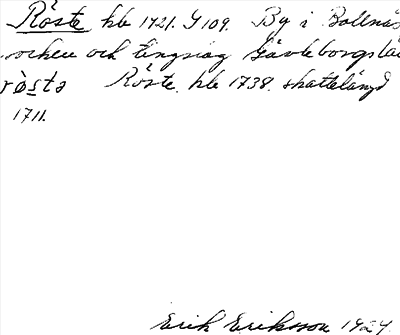 Röste hlb 1721. G 109. By i Bollnäs
socken och tingslag Gävleborgs lä
rö̀sta Röste. hlb 1738. skattelängd
1711.
Erik Eriksson 1924.